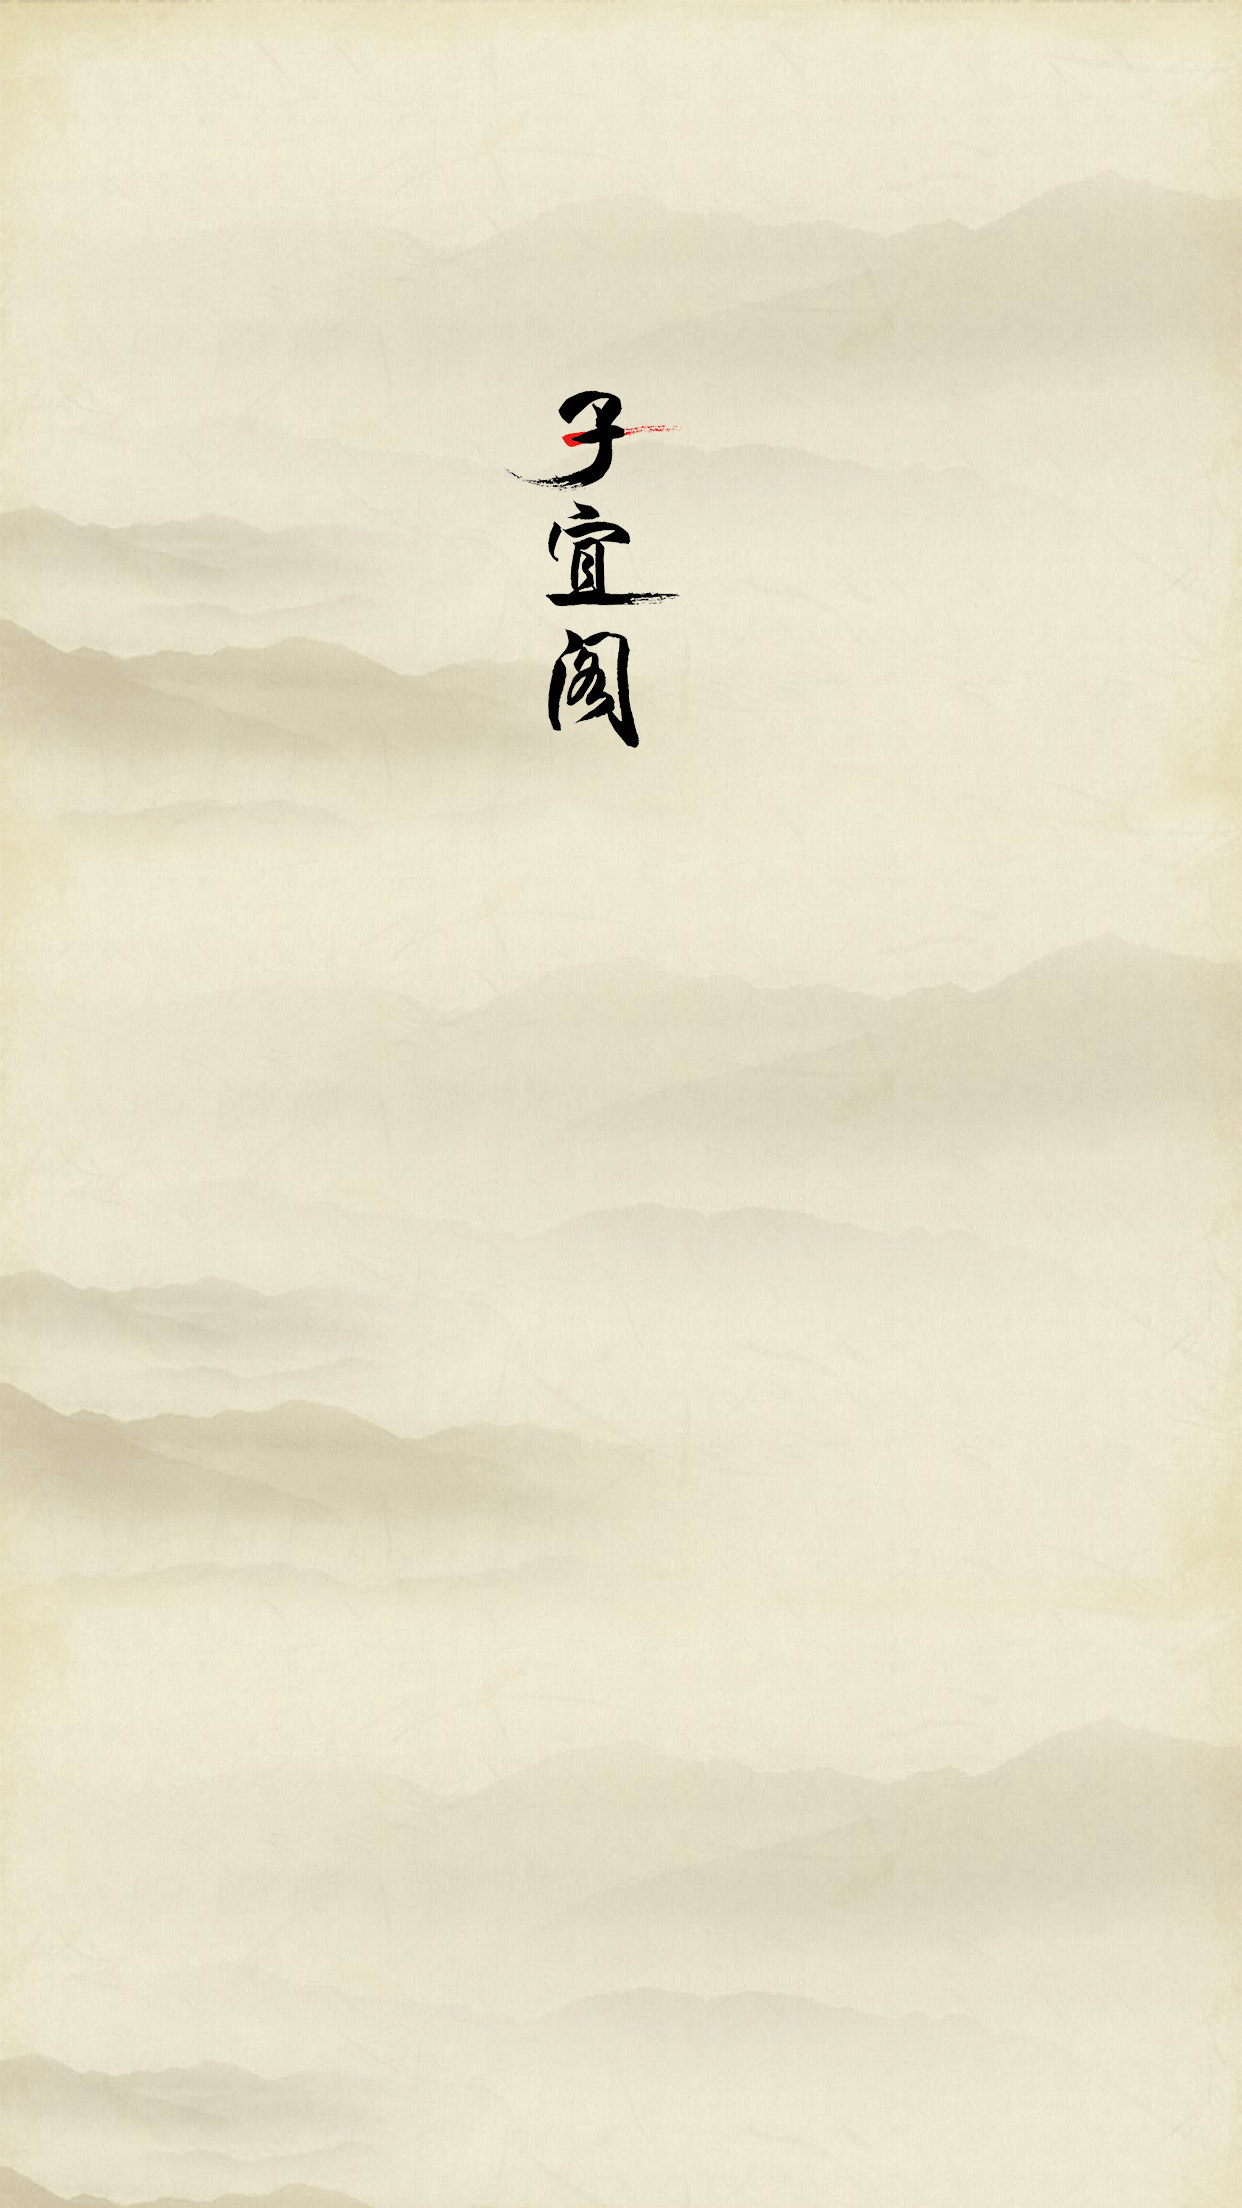 子宜阁